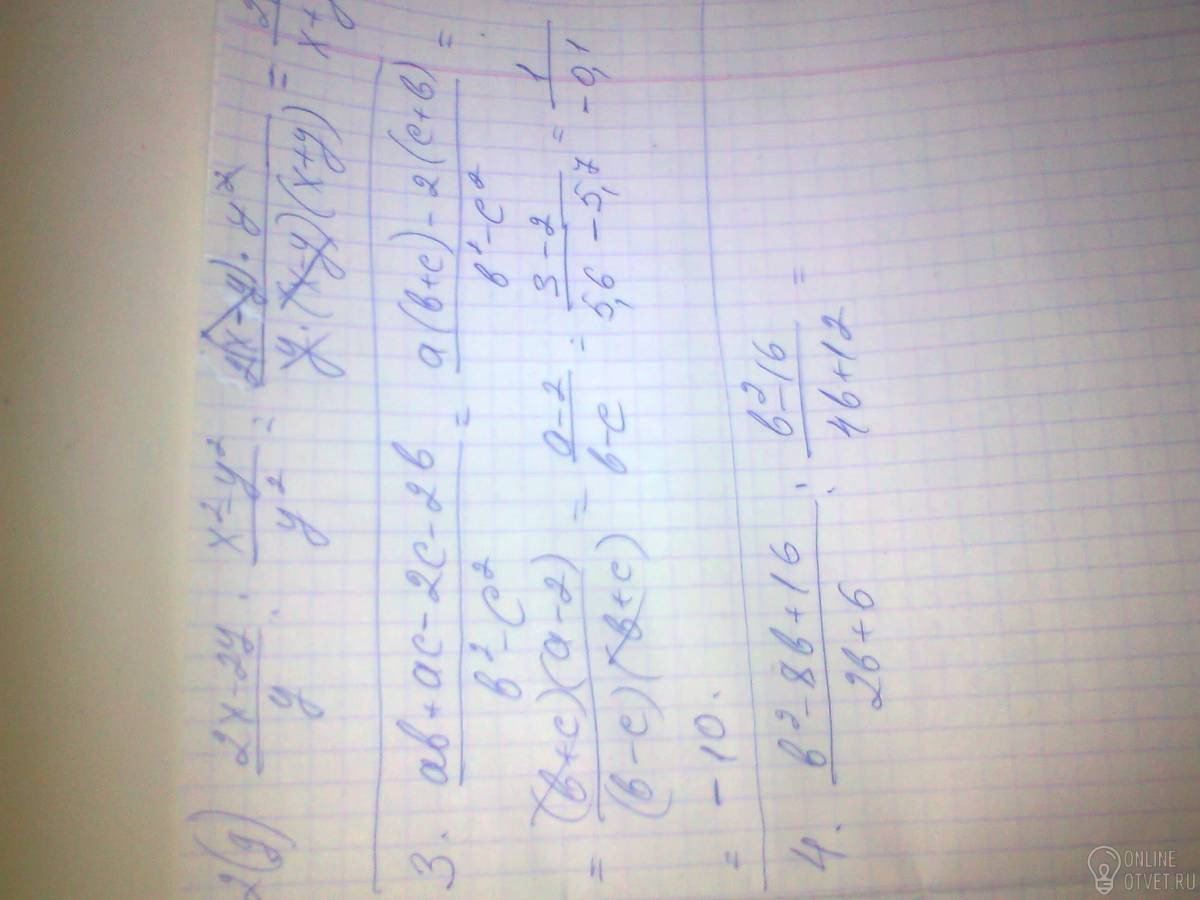 2(г) (2x-2y)/y : (x²-y²)/y² = (2(x-y)·y²)/(y·(x-y)(x+y)) = 2/(x+y
3. (ab+ac-2c-2b)/(b²-c²) = (a(b+c)-2(c+b))/(b²-c²) =
= ((b+c)(a-2))/((b-c)(b+c)) = (a-2)/(b-c) = (3-2)/(5,6-5,7) = 1/(-0,1)
= -10.
4. (b²-8b+16)/(2b+6) : (b²-16)/(4b+12) =
ONLINE
OTVET.RU